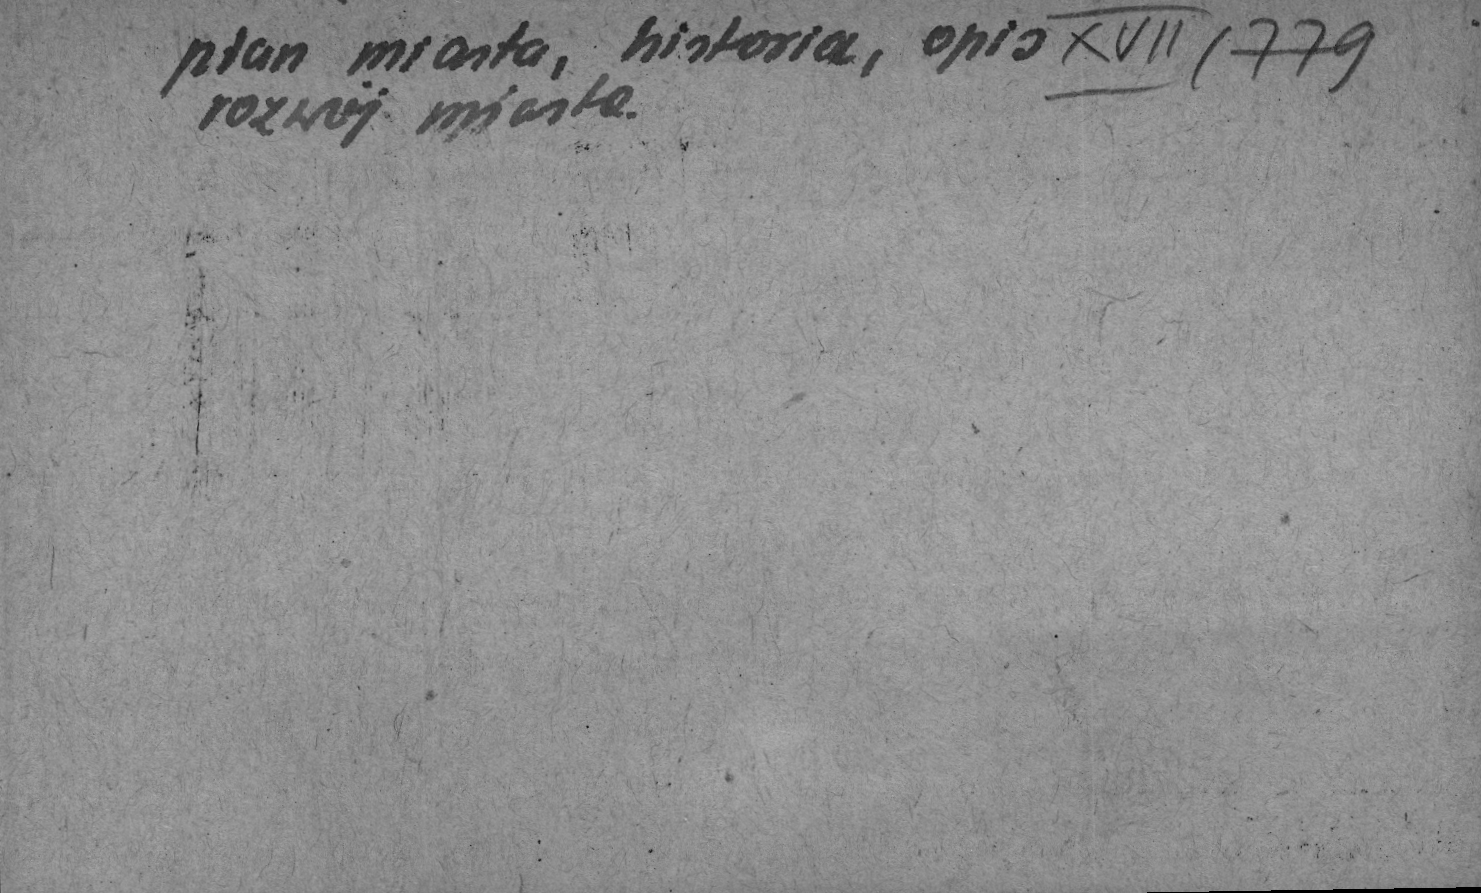 plan miasta, historia, opis XVII/779
rozwój miasta.